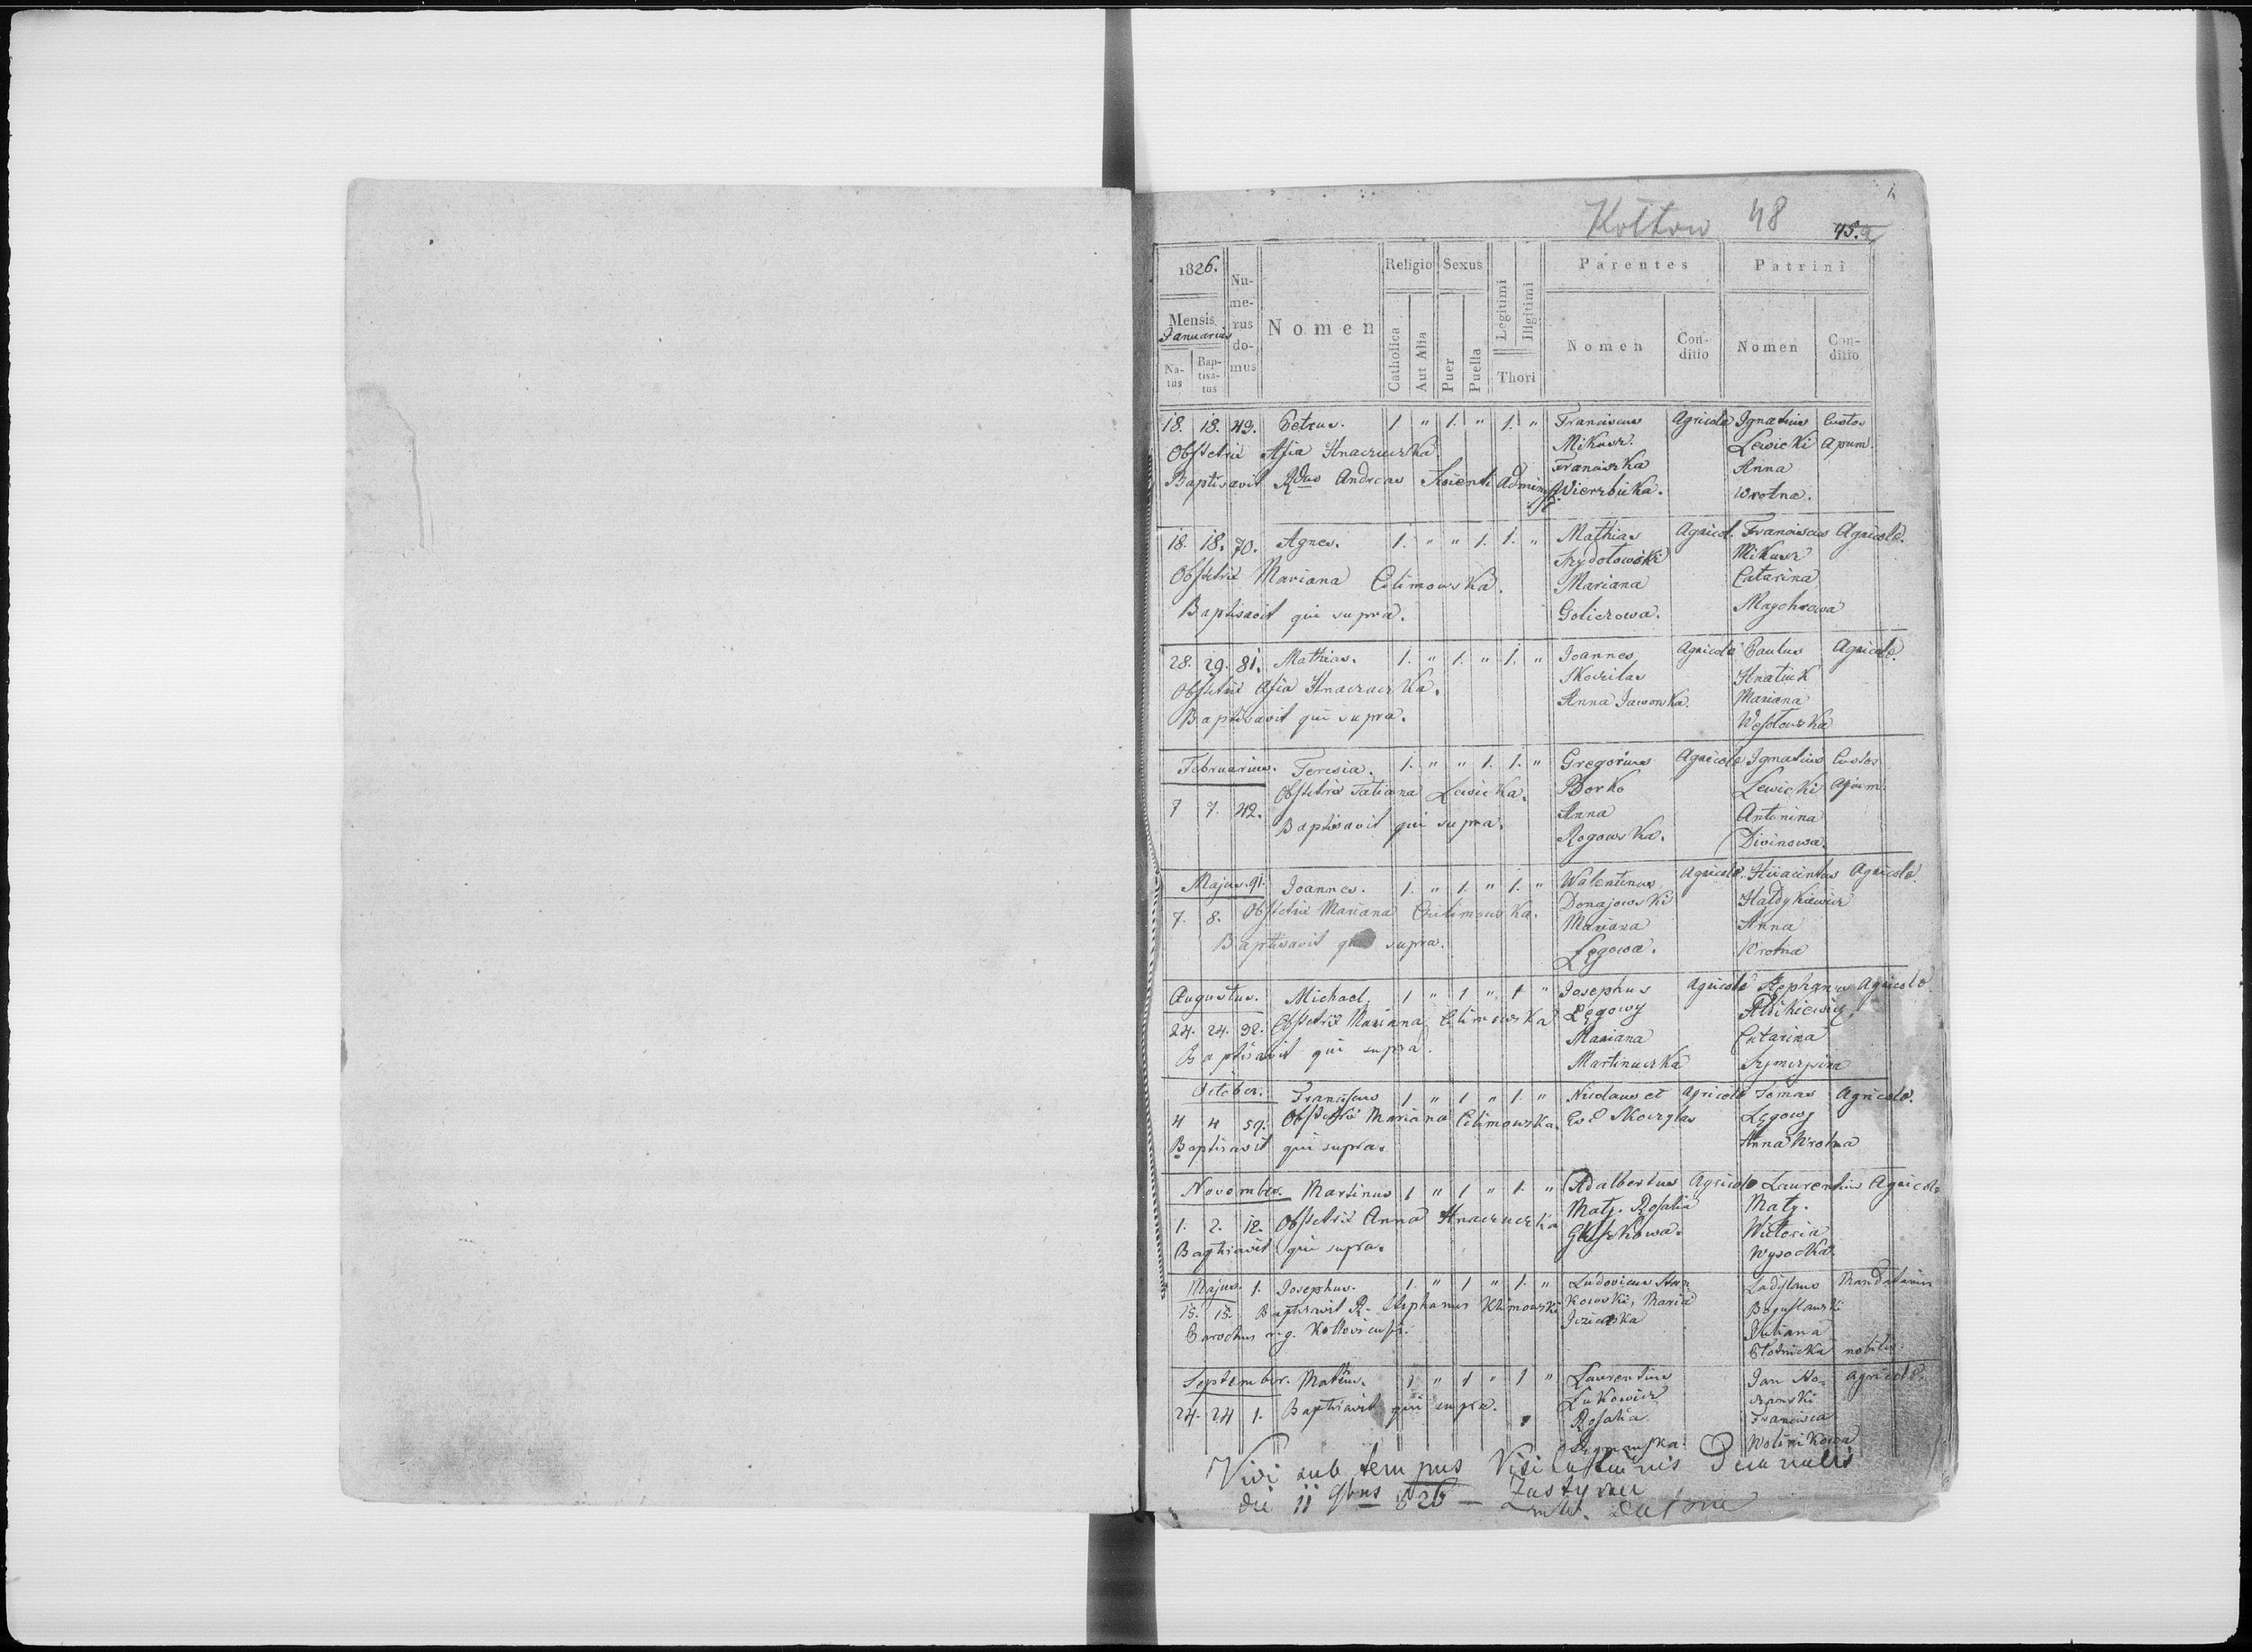 1.
Kołtow 48 48.a
1826. Nu-me-rus do-mus Nomen Religio Sexus Legitimi Illigitimi Parentes Patrini
Mensis Januarius Catholica Aut Alia Puer Puella Thori Nomen Con-ditio Nomen Con-ditio
Na-tus Bap-tisa-tus
18. 18. 49. Petrus. 1 " 1. " 1. " Franciscus Agricola Ignatius Custos
Obstetrix Asia Hnaczuczka Mikusz. Lewicki Apum.
Franciszka Anna
Baptisavit Rdus Andreas Administr. Wierzbicka. Wrotna.
18. 18. 70. Agnes. 1. " " 1. 1. " Mathias Agricol. Franciscus Agricola.
Szydołowski Mikusz
Obstetrix Mariana Climowska. Mariana Catarina
Baptisavit qui supra. Goliczowa. Maychrowa
28. 29. 81. Mathias. 1. " 1. " 1. " Joannes Agricola Paulus Agricola.
Obstetrix Asia Hnaczuczka. Skoczilas Hnatiuk
Anna Jaworska. Mariana
Baptisavit qui supra. Wesołowska
Februarius. Teresia. 1. " " 1. 1. " Gregorius Agricola Ignatius Custos
Obstetrix Tatiana Lewicka. Borko Lewicki Apum.
7 7. 42. Anna Antonina
Baptisavit qui supra. Rogowska. Divinowa.
Majus. 91. Joannes. 1. " 1. " 1. " Walentinus Agricola. Hiacintus Agricola.
7. 8. Obstetrix Mariana Climowska. Donajowski Hałdykiewicz
Mariana Anna
Baptisavit qui supra. Lęgowa. Wrotna
Augustus. Michael. 1 " 1 " 1 " Josephus Agricola Stephanus Agricola
24. 24. 92. Obstetrix Mariana Climowska Lęgowy
Baptisavit qui supra. Mariana Catarina
Martinuczka
October. Franciscus 1 " 1 " 1. " Nicolaus et Agricola Tomas Agricola.
4 4 59. Obstetrix Mariana Climowska. Eva Skoczylas Lęgowy
Baptisavit qui supra. Anna Wrotna
November. Martinus 1 " 1 " 1. " Adalbertus Agricola Laurentius Agricola
1. 2. 12. Obstetrix Anna Hnaczuczka Maty. Rosalia Maty.
Baptisavit qui supra. Victoria
Wysocka.
Majus. 1. Josephus. 1. " 1 " 1. " Ludovicus Ladislaus Mandatarius
15. 15. Baptisavit R. Stephanus Klimowski Maria Bogusławski
Parochus r. g. Juliana
nobilis.
September. 1 " 1 " 1 " Laurentius Jan Agricola.
24. 24 1. Baptisavit qui supra. Lukowicz
Rosalia Francisca
Vidi sub tempus Visitationis Decanalis
die 11 9bris 826